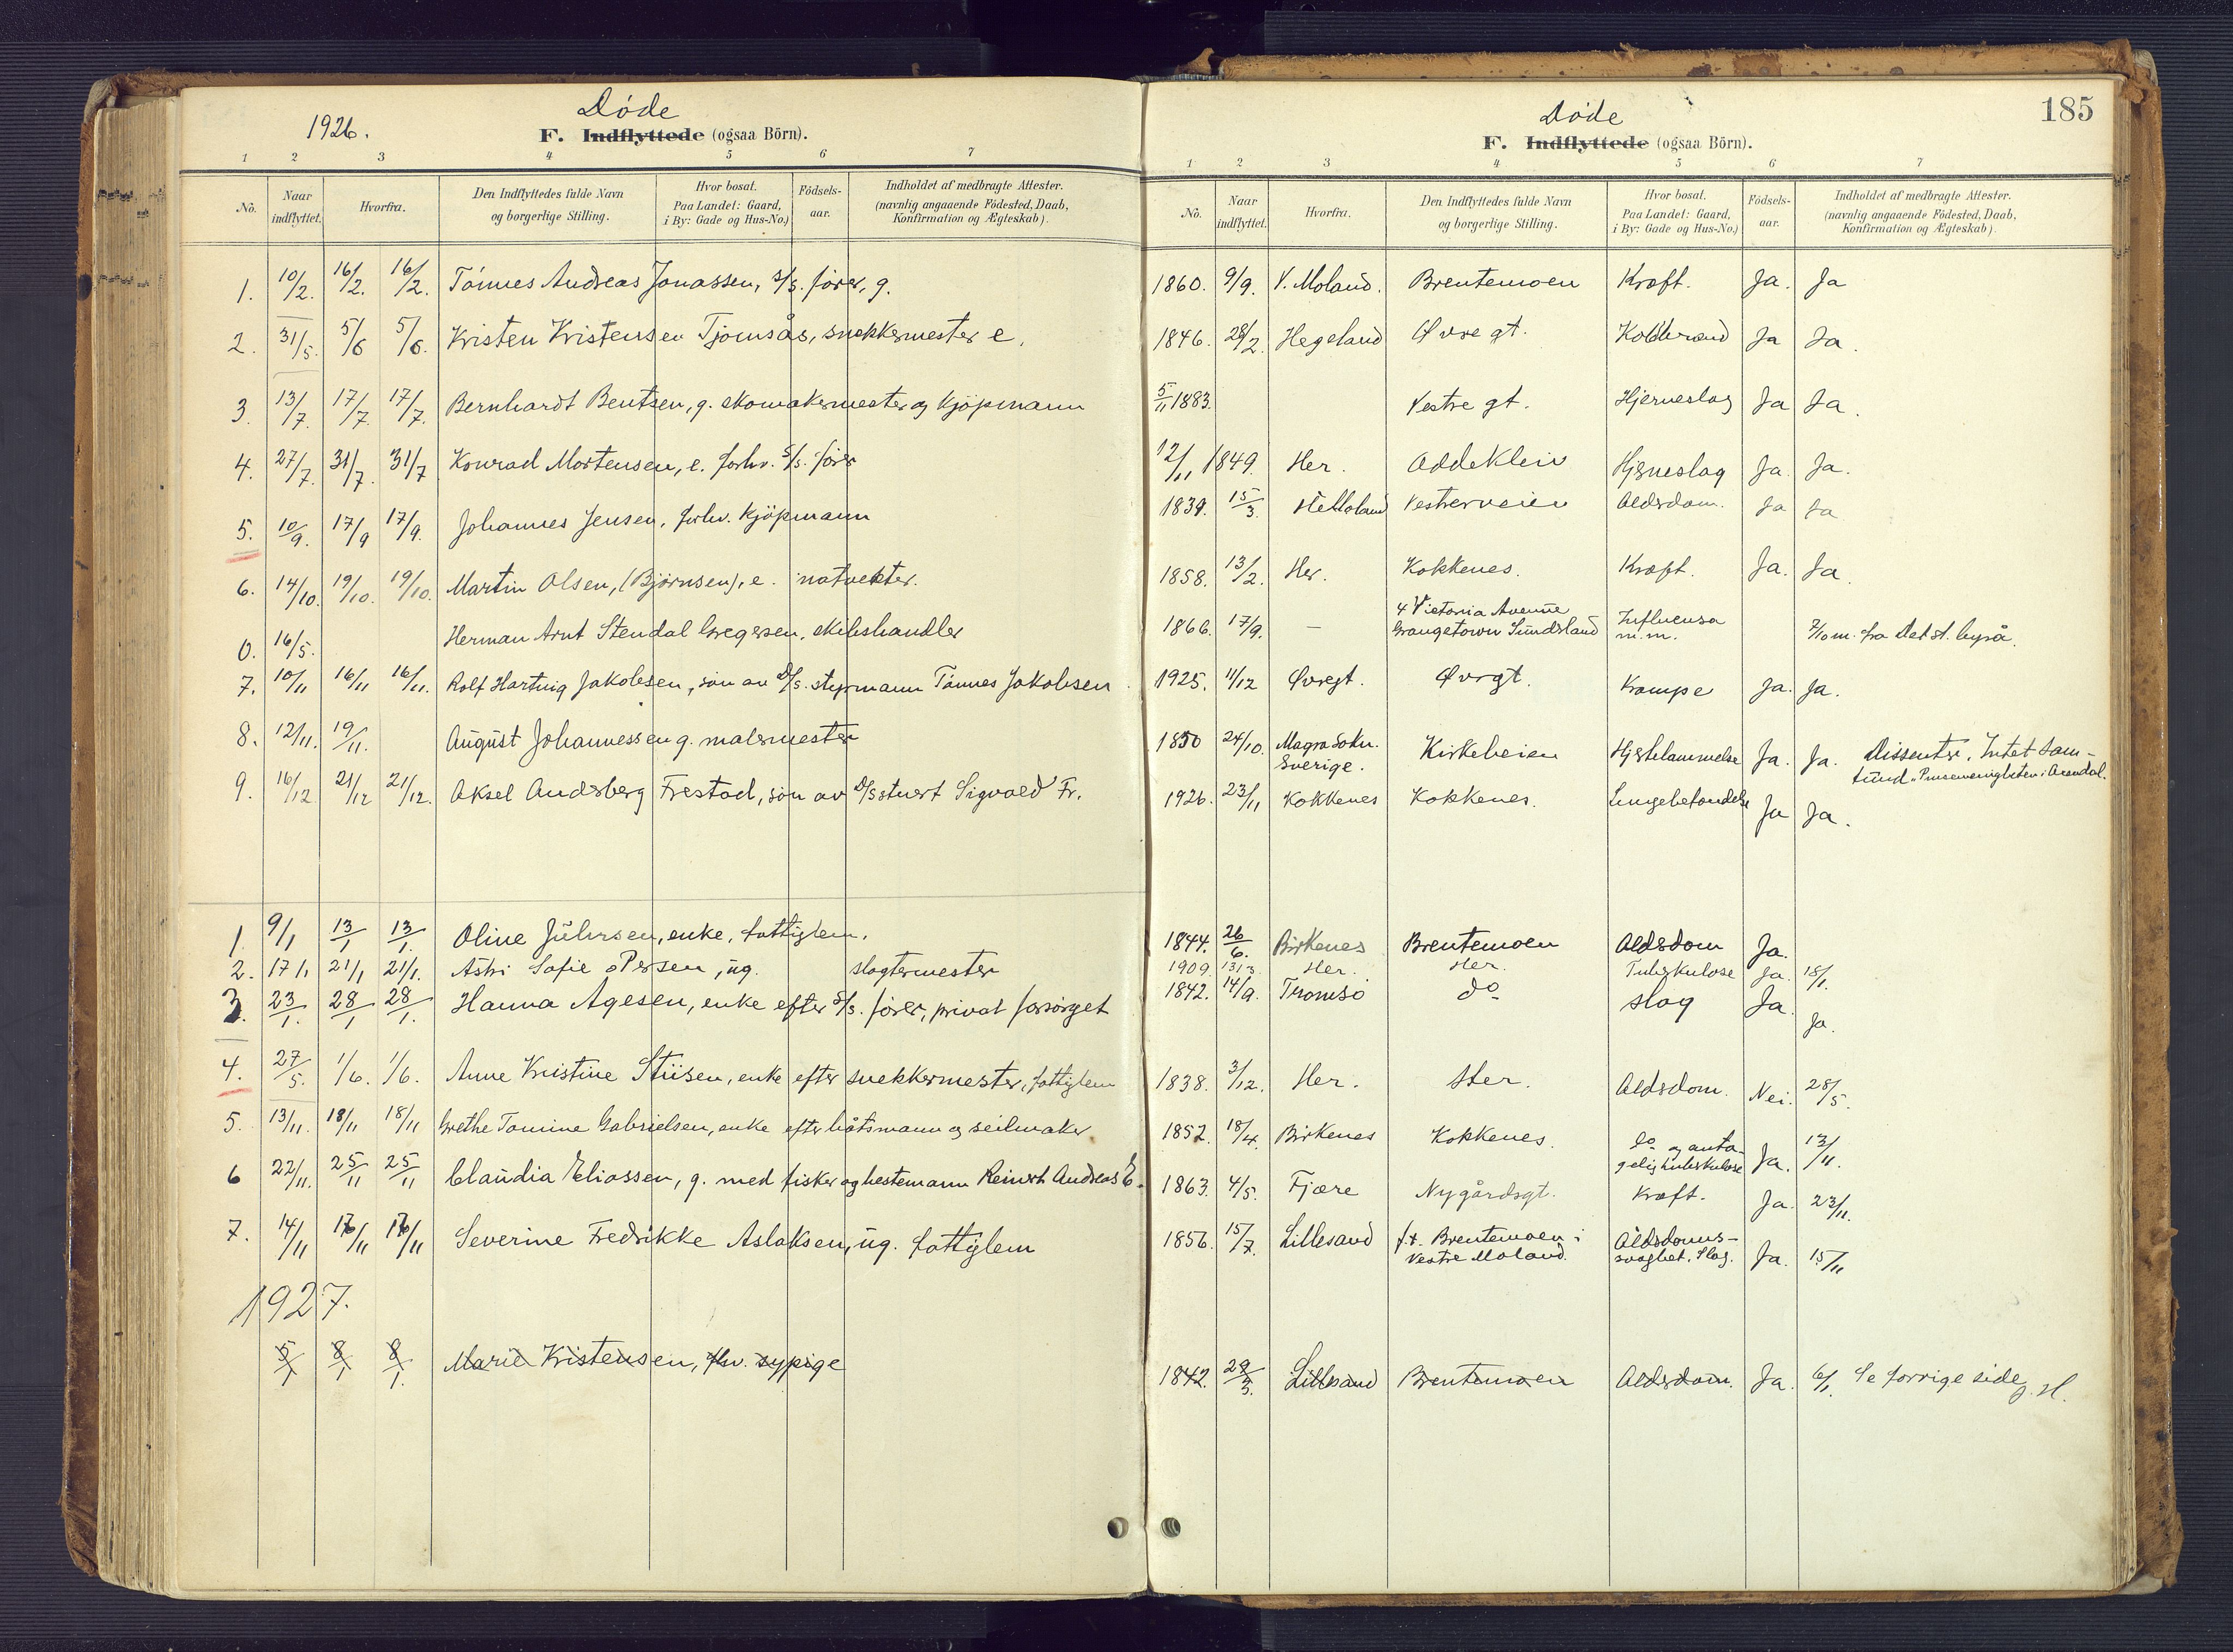 1926.
Døde
F. Indflyttede (ogsaa Börn).
1 2 3 4 5 6 7
No. Naar indflyttet. Hvorfra. Den Indflyttedes fulde Navn og borgerlige Stilling. Hvor bosat. Paa Landet: Gaard, i By: Gade og Hus-No.) Födsels-aar. Indholdet af medbragte Attester. (navnlig angaaende Födested, Daab, Konfirmation og Ægteskab).
1. 10/2. 16/2. 16/2. Tønnes Andreas Jonassen, s/s. fører, g.
2. 31/5. 5/6 5/6. Kristen Kristensen Tjomsås, snekkermester e.
3. 13/7. 17/7. 17/7. Bernhardt Bentsen, g. skomakermester og kjöpmann
4. 27/7. 31/7. 31/7 Konrad Mortensen, e. forhv. S/s. fører
5. 10/9. 17/9 17/9. Johannes Jensen, forhv. kjöpmann
6. 14/10. 19/10. 19/10. Martin Olsen, (Bjørnsen), e. natvekter.
0. 16/5. Herman Arnt Stendal Gregersen, skibshandler
7. 10/11 16/11 16/11. Rolf Hartvig Jakobsen, søn av D/s. styrmann Tønnes Jakobsen
8. 12/11. 19/11. August Johannessen g. malermester
9. 16/12 21/12 21/12. Aksel Andsberg Frestad, søn av D/s stuert Sigvald Fr.
1. 9/1 13/1 13/1. Oline Juhrsen, enke, fattiglem.
2. 17/1 21/1 21/1. Astri Sofie Persen, ug. slagtermester
3. 23/1. 28/1 28/1. Hanna Agesen, enke efter S/s. fører, privat forsørget
4. 27/5. 1/6. 1/6. Anne Kristine Stiisen, enke efter snekkermester, fattiglem
5. 13/11. 18/11 18/11 Grethe Tomine Gabrielsen, enke efter båtsmann og seilmaker
6 22/11. 25/11 25/11 Claudia Eliassen, g. med fisker og hestemann Reinert Andreas E.
7. 14/11 17/11 17/11 Severine Fredrikke Aslaksen, ug. fattiglem
1927.
5/1 8/1 8/1. Marie Kristensen, fhv. sypige
185
Døde
F. Indflyttede (ogsaa Börn).
1 2 3 4 5 6 7
No. Naar indflyttet. Hvorfra. Den Indflyttedes fulde Navn og borgerlige Stilling. Hvor bosat. Paa Landet: Gaard, i By: Gade og Hus-No.) Födsels-aar. Indholdet af medbragte Attester. (navnlig angaaende Födested, Daab, Konfirmation og Ægteskab).
1860. 9/9. V. Moland. Brentemoen Kræft. Ja. Ja
1846. 28/2. Hegeland Øvre gt. Koldbrand Ja Ja.
5/11 1883. Vestre gt. Hjerneslag Ja Ja.
12/11 1849. Her. Oddekleiv Hjerneslag Ja. Ja.
1839. 15/3. Moland Vestreveien Aldsdom. Ja Ja
1858. 13/2. Her. Kokkenes. Kræft. Ja. Ja.
1866. 17/9. – 4 Victoria Avenue Grangetown Sundsland Influensa m.m. 7/10 m. fra Det st. byrå.
1925. 11/12 Øvregt. Øvrgt. Krampe Ja. Ja.
1850 24/10. Magra Sokn. Sverige. Kirkeheien Hjertelammelse Ja. Ja. Dissenter. Intet samfund "Pinsemenigheten i Arendal.
1926. 23/11 Kokkenes Kokkenes. Lungebetændelse Ja Ja.
1844. 26/6. Birkenes Brentemoen Aldsdom Ja.
1909. 13/3. Her. Her. Tuberkulose Ja. 18/1.
1842. 14/9. Tromsø do slag Ja. Ja.
1838. 3/12. Her. Her. Aldsdom. Nei. 28/5.
1852. 18/4. Birkenes Kokkenes. do og antagelig tuberkulose Ja. 13/11.
1863. 4/5. Fjære Nygårdsgt. Kræft. Ja. 23/11.
1856. 15/7. Lillesand f.t. Brentemoen i Vestre Moland. Aldsdoms-svaghet. Slag. Ja. 15/11
1842. 29/3. Lillesand Brentemoen Aldsdom. Ja. 6/1. Se forrige side J. H.